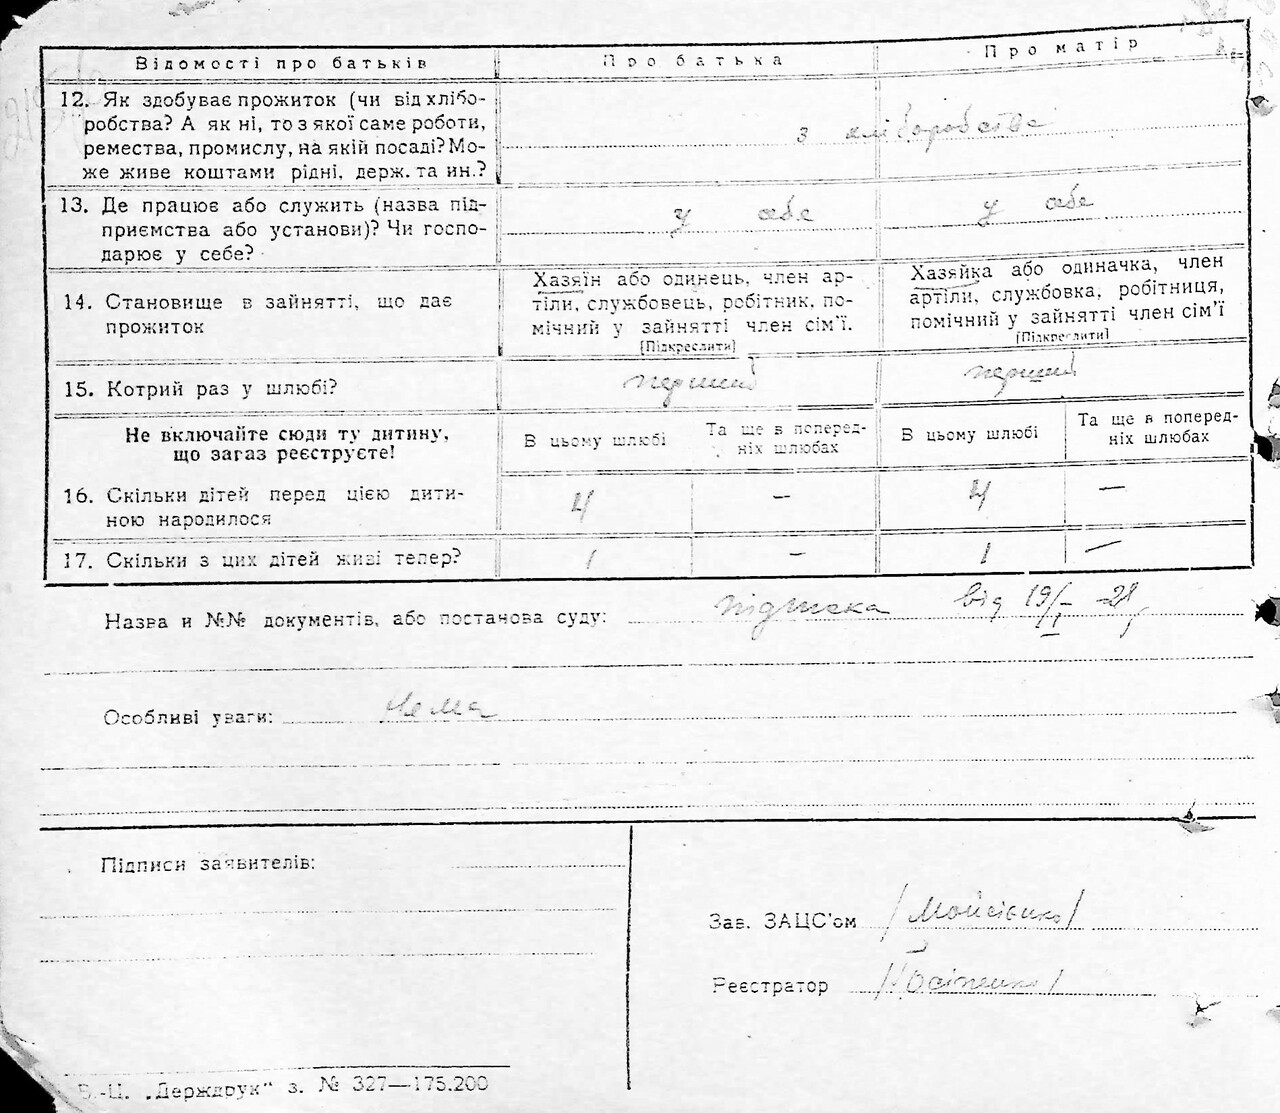 Відомості про батьків
Про батька
Про матір
12. Як здобуває прожиток (чи від хлібо-
робства? А як ні, то з якої саме роботи,
ремества, промислу, на якій посаді? Мо-
же живе коштами рідні, держ. та ин.?
з хліборобства
13. Де працює або служить (назва під-
приємства або установи)? Чи госпо-
дарює у себе?
у себе
у себе
14. Становище в зайнятті, що дає
прожиток
Хазяїн або одинець, член ар-
тіли, службовець, робітник, по-
мічний у зайнятті член сім'ї.
[Підкреслити]
Хазяйка або одиначка, член
артіли, службовка, робітниця,
помічний у зайнятті член сім'ї
[Підкреслити]
15. Котрий раз у шлюбі?
перший
перший
Не включайте сюди ту дитину,
що загаз реєструєте!
В цьому шлюбі
Та ще в поперед-
ніх шлюбах
В цьому шлюбі
Та ще в поперед-
ніх шлюбах
16. Скільки дітей перед цією дити-
ною народилося
4
—
4
—
17. Скільки з цих дітей живі тепер?
1
—
1
—
Назва и №№ документів, або постанова суду: підписка від 19/I–
Особливі уваги: Нема
Підписи заявителів:
Зав. ЗАЦС'ом /Мойсієнко/
Реєстратор /Осіпенко/
В.-Ц. „Держдрук" з. № 327—175.200